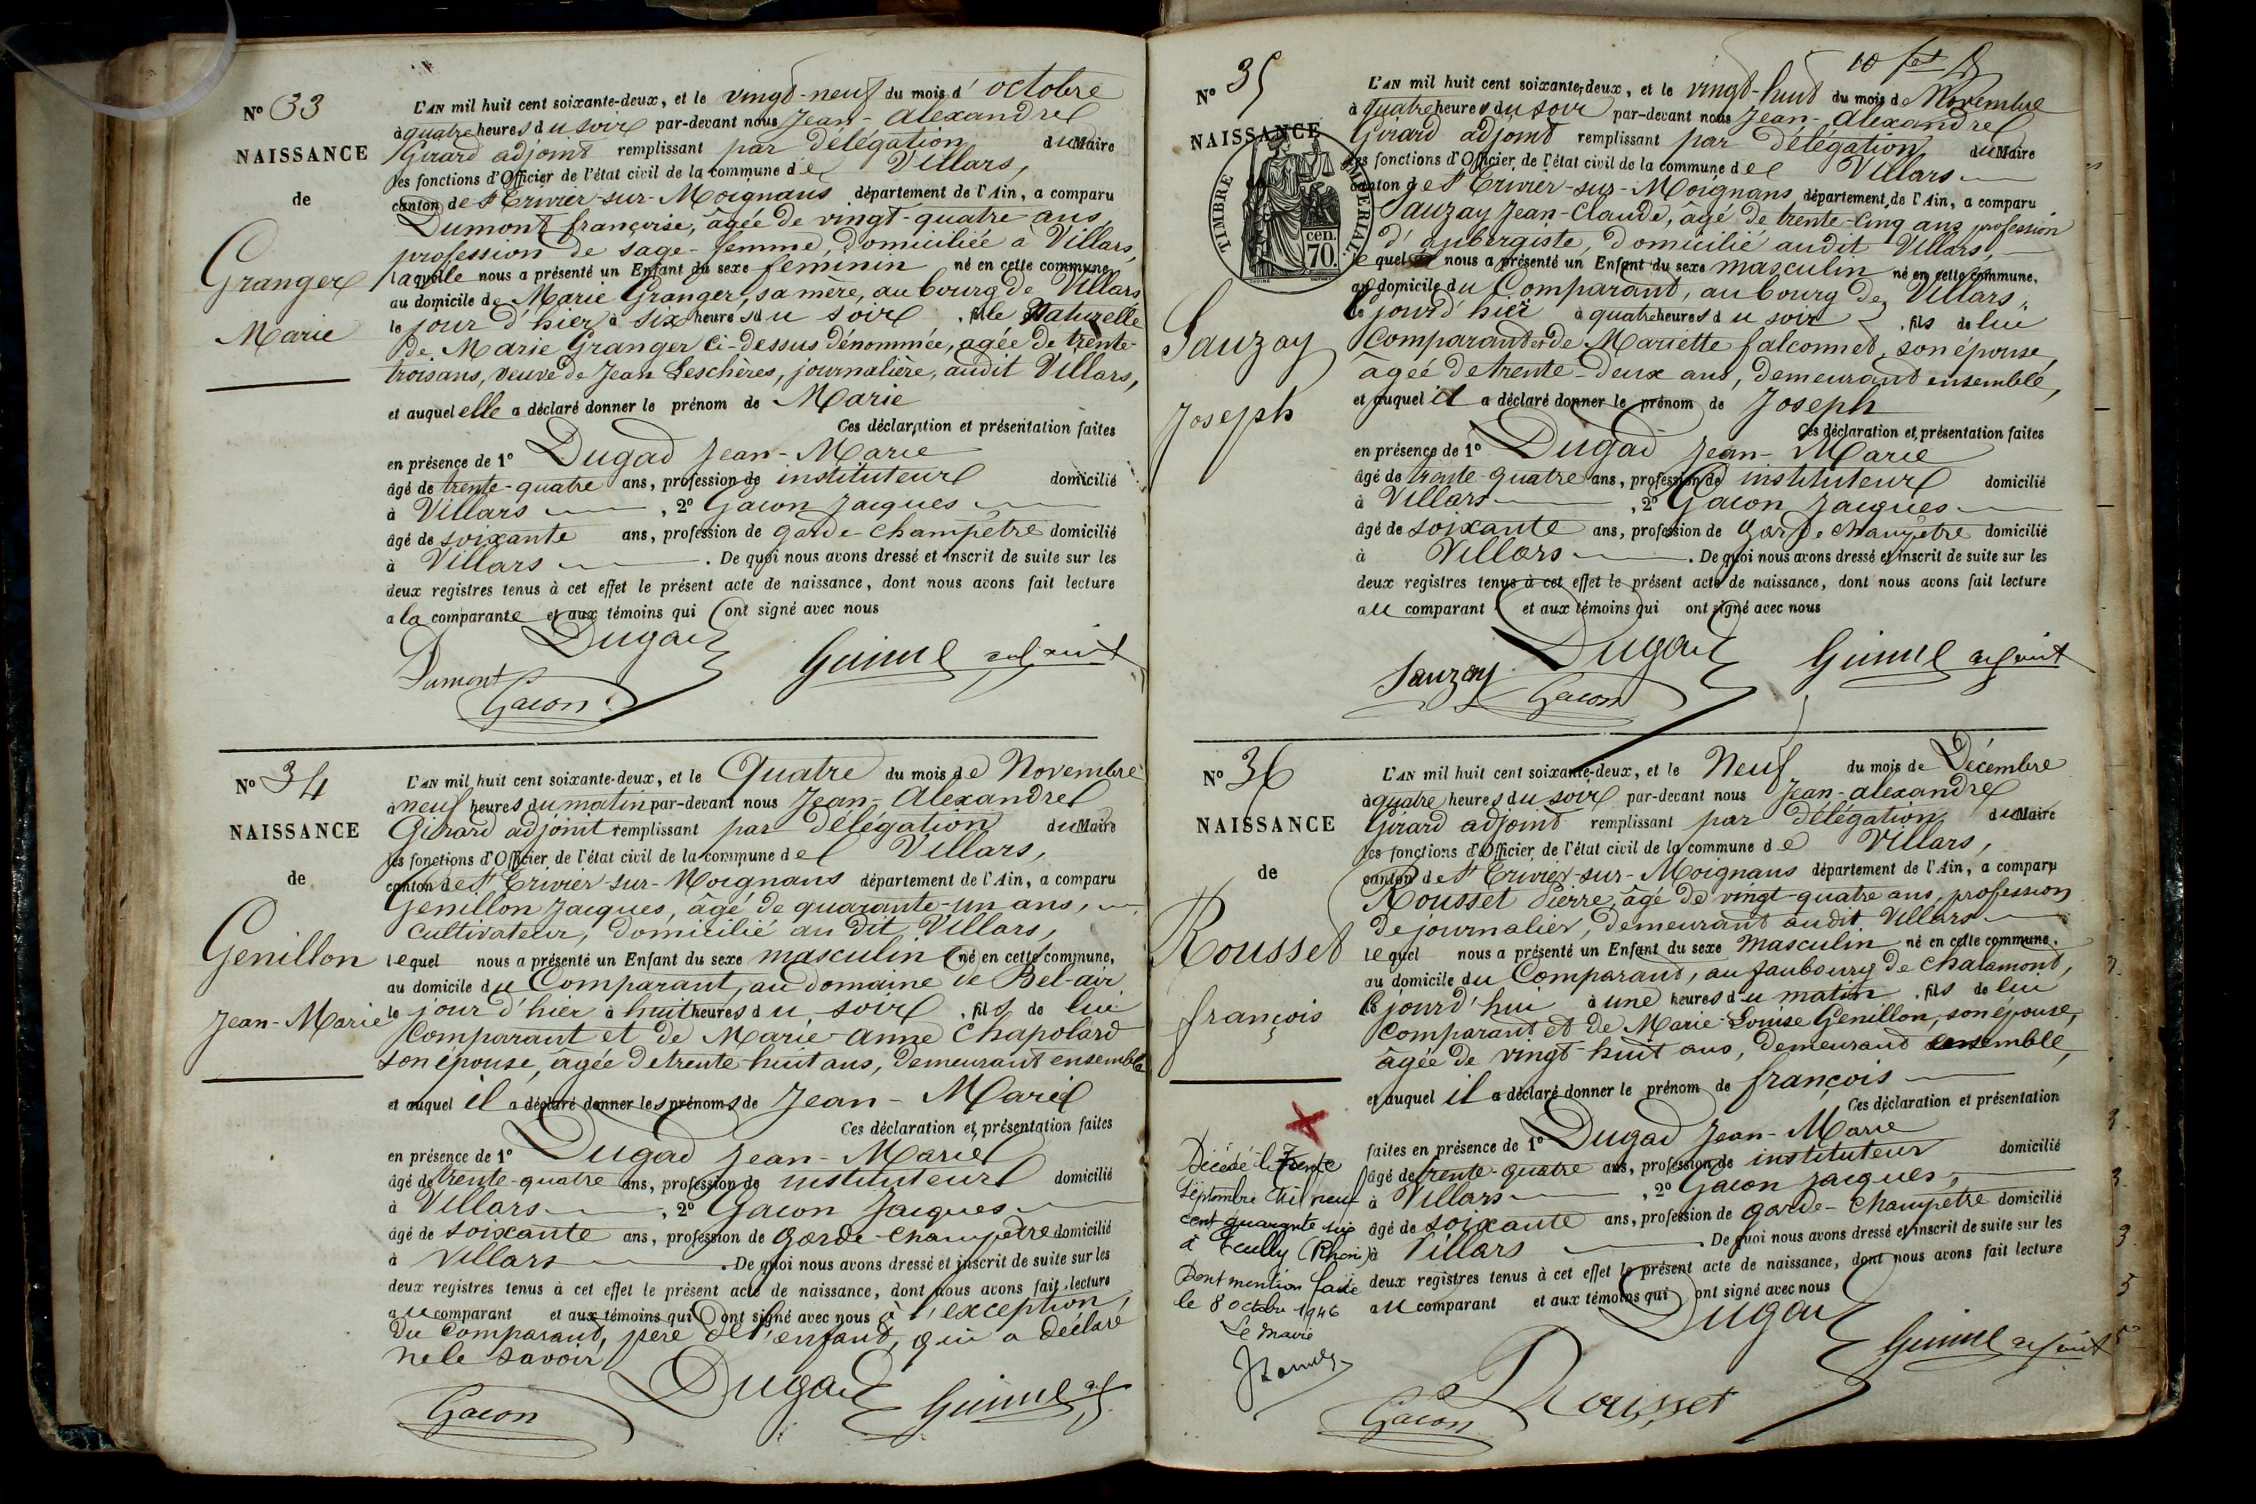 N° 33
NAISSANCE
de
Granger
Marie
L'AN mil huit cent soixante-deux, et le vingt-neuf du mois d'octobre
à quatre heures du soir par-devant nous Jean-Alexandre
Girard adjoint remplissant par délégation du Maire
les fonctions d'Officier de l'état civil de la commune de Villars,
canton de St Trivier-sur-Moignans département de l'Ain, a comparu
Dumont françoise, âgée de vingt-quatre ans,
profession de sage-femme, domiciliée à Villars,
laquelle nous a présenté un Enfant du sexe féminin né en cette commune,
au domicile de Marie Granger, sa mère, au bourg de Villars
le jour d'hier à six heures du soir, fille Naturelle
de Marie Granger ci-dessus dénommée, agée de trente-
trois ans, veuve de Jean Leschères, journalière, audit Villars,
et auquel elle a déclaré donner le prénom de Marie
Ces déclaration et présentation faites
en présence de 1° Dugad Jean-Marie
âgé de trente-quatre ans, profession de instituteur domicilié
à Villars, 2° Gacon Jacques
âgé de soixante ans, profession de garde-champêtre domicilié
à Villars. De quoi nous avons dressé et inscrit de suite sur les
deux registres tenus à cet effet le présent acte de naissance, dont nous avons fait lecture
a la comparante et aux témoins qui ont signé avec nous
Dugad
Dumont
Gacon
adjoint
N° 34
NAISSANCE
de
Genillon
Jean-Marie
L'AN mil huit cent soixante-deux, et le Quatre du mois de Novembre
à neuf heures du matin par-devant nous Jean-Alexandre
Girard adjoint remplissant par délégation du Maire
les fonctions d'Officier de l'état civil de la commune de Villars,
canton de St Trivier-sur-Moignans département de l'Ain, a comparu
Genillon Jacques, âgé de quarante-un ans,
cultivateur, domicilié au dit Villars,
lequel nous a présenté un Enfant du sexe masculin né en cette commune,
au domicile du Comparant, au domaine de Bel-air
le jour d'hier à huit heures du soir, fils de lui
comparant et de Marie-Anne Chapolard
son épouse, âgée de trente-huit ans, demeurant ensemble
et auquel il a déclaré donner les prénoms de Jean-Marie
Ces déclaration et présentation faites
en présence de 1° Dugad Jean-Marie
âgé de trente-quatre ans, profession de instituteur domicilié
à Villars, 2° Gacon Jacques
âgé de soixante ans, profession de Garde-champêtre domicilié
à Villars. De quoi nous avons dressé et inscrit de suite sur les
deux registres tenus à cet effet le présent acte de naissance, dont nous avons fait lecture
au comparant et aux témoins qui ont signé avec nous à l'exception
du comparant, père de l'enfant, qui a déclaré
ne le savoir
Dugad
Gacon
N° 35
NAISSANCE
TIMBRE IMPERIAL
70 cen.
Sauzay
Joseph
L'AN mil huit cent soixante-deux, et le vingt-huit du mois de Novembre
à quatre heures du soir par-devant nous Jean-Alexandre
Girard adjoint remplissant par délégation du Maire
les fonctions d'Officier de l'état civil de la commune de Villars
canton de St Trivier-sur-Moignans, département de l'Ain, a comparu
Sauzay Jean-Claude, âgé de trente-cinq ans, profession
d'aubergiste, domicilié audit Villars,
lequel nous a présenté un Enfant du sexe masculin né en cette commune,
au domicile du Comparant, au bourg de Villars,
le jourd'hier à quatre heures du soir, fils de lui
comparant et de Mariette falconnet, son épouse,
âgée de trente-deux ans, demeurant ensemble,
et auquel il a déclaré donner le prénom de Joseph
Ces déclaration et présentation faites
en présence de 1° Dugad Jean-Marie
âgé de trente-quatre ans, profession de instituteur domicilié
à Villars, 2° Gacon Jacques
âgé de soixante ans, profession de Garde champêtre domicilié
à Villars. De quoi nous avons dressé et inscrit de suite sur les
deux registres tenus à cet effet le présent acte de naissance, dont nous avons fait lecture
au comparant et aux témoins qui ont signé avec nous
Dugad
Sauzay
Gacon
adjoint
N° 36
NAISSANCE
de
Rousset
françois
L'AN mil huit cent soixante-deux, et le Neuf du mois de Décembre
à quatre heures du soir par-devant nous Jean-alexandre
Girard adjoint remplissant par délégation du Maire
les fonctions d'Officier de l'état civil de la commune de Villars,
canton de St Trivier-sur-Moignans département de l'Ain, a comparu
Rousset Pierre, âgé de vingt-quatre ans, profession
de journalier, demeurant audit Villars
lequel nous a présenté un Enfant du sexe masculin né en cette commune,
au domicile du Comparant, au faubourg de Chalamont,
le jourd'hui à une heures du matin, fils de lui
comparant et de Marie-Louise Genillon, son épouse,
âgée de vingt-huit ans, demeurant ensemble,
et auquel il a déclaré donner le prénom de françois
Ces déclaration et présentation
faites en présence de 1° Dugad Jean-Marie
âgé de trente-quatre ans, profession de instituteur domicilié
à Villars, 2° Gacon Jacques,
âgé de soixante ans, profession de garde-champêtre domicilié
à Villars. De quoi nous avons dressé et inscrit de suite sur les
deux registres tenus à cet effet le présent acte de naissance, dont nous avons fait lecture
au comparant et aux témoins qui ont signé avec nous
Dugad
adjoint
Rousset
Gacon
Décédé le Trente
Septembre Mil neuf
cent quarante six
à Ecully (Rhône)
Dont mention faite
le 8 octobre 1946
Le Maire